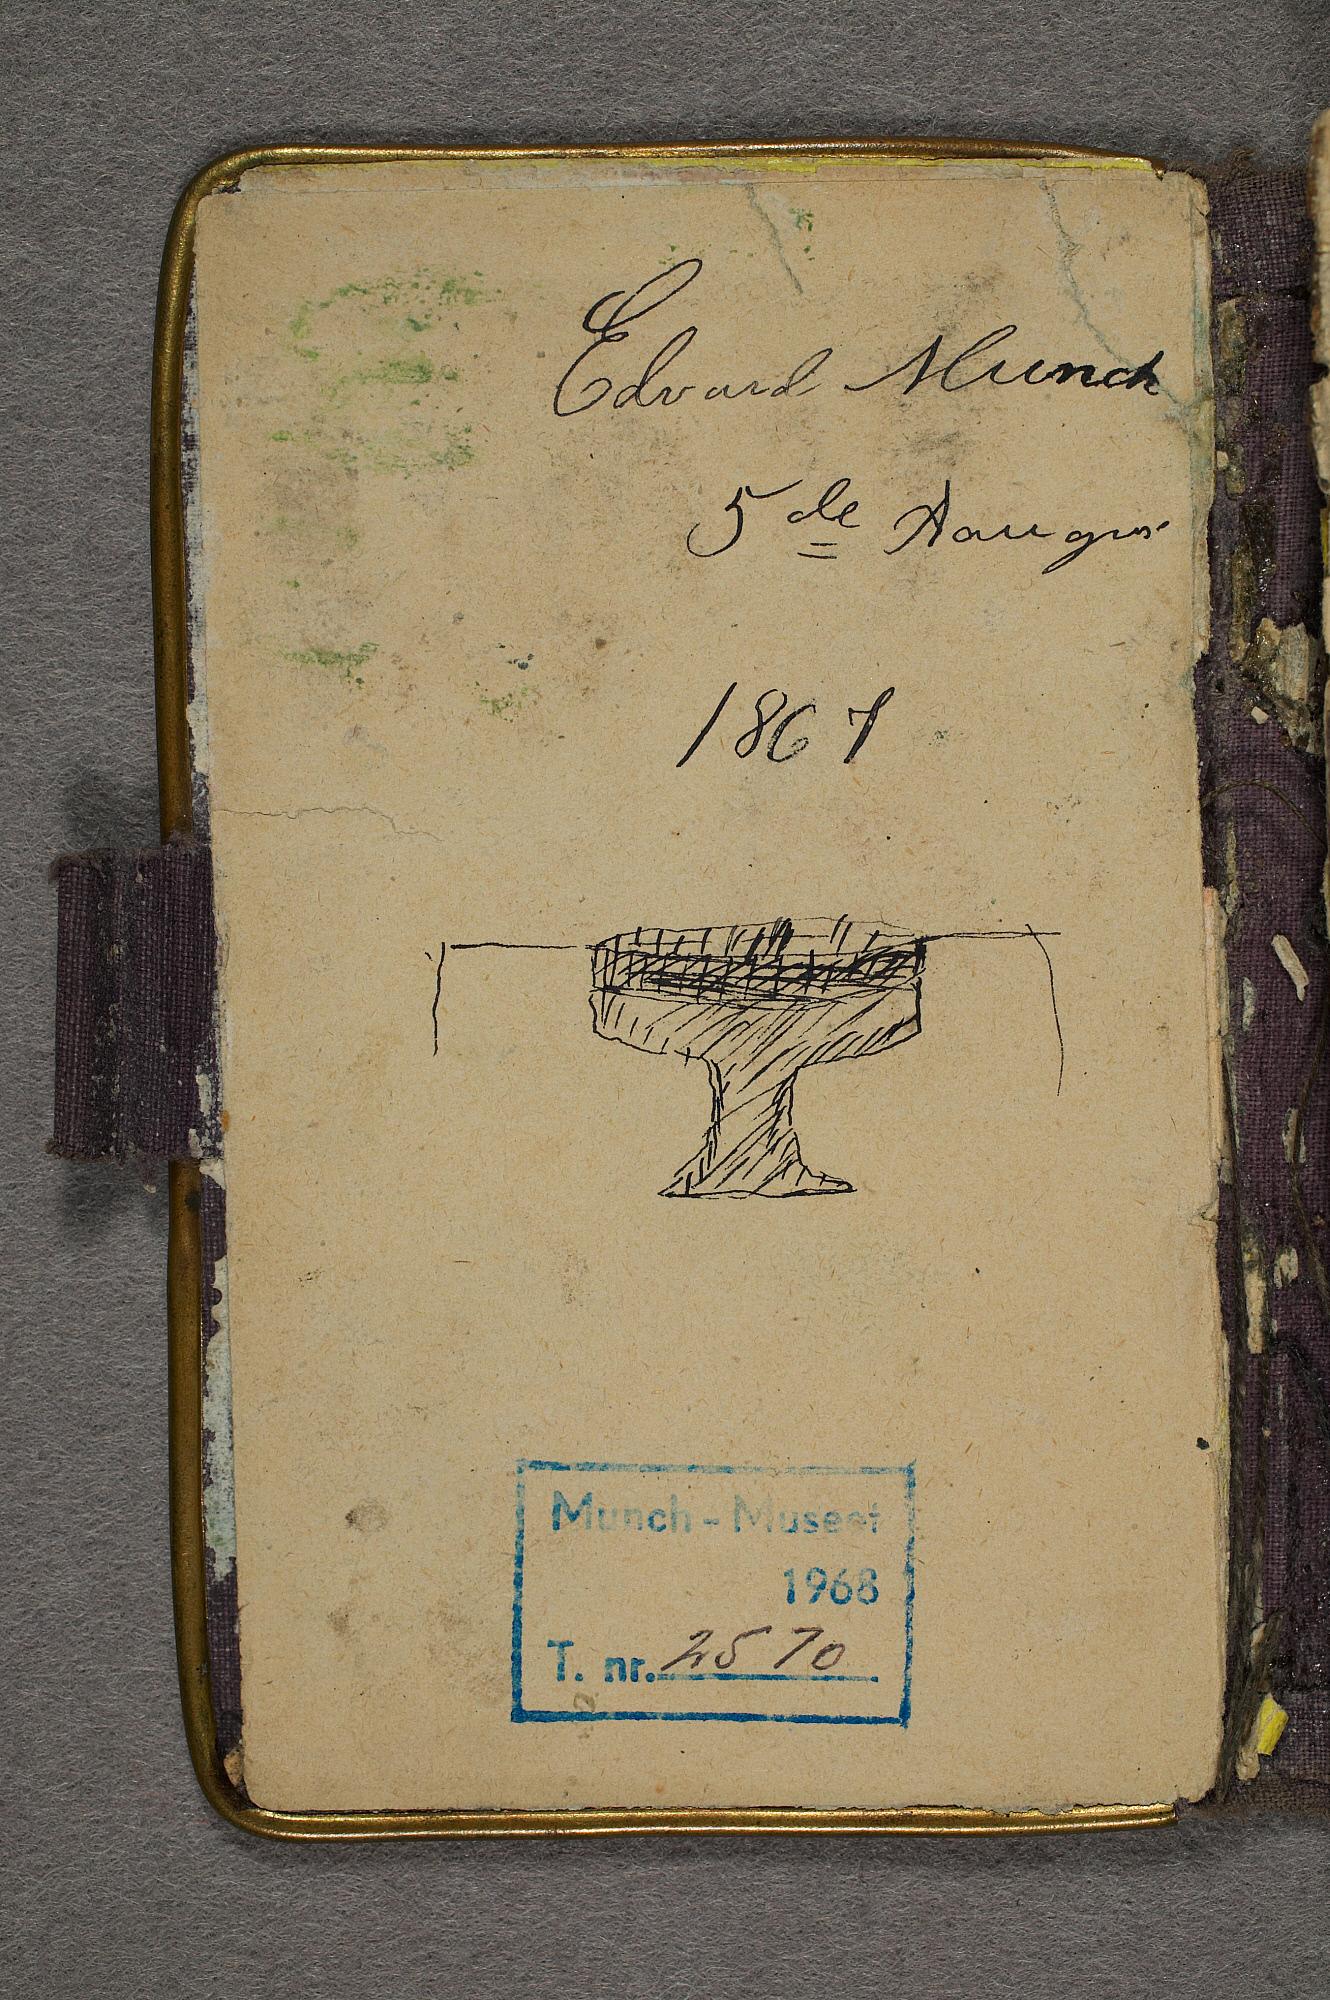 Edvard Munch
5 de
1867
Munch-Museet
1968
T. nr. 2570